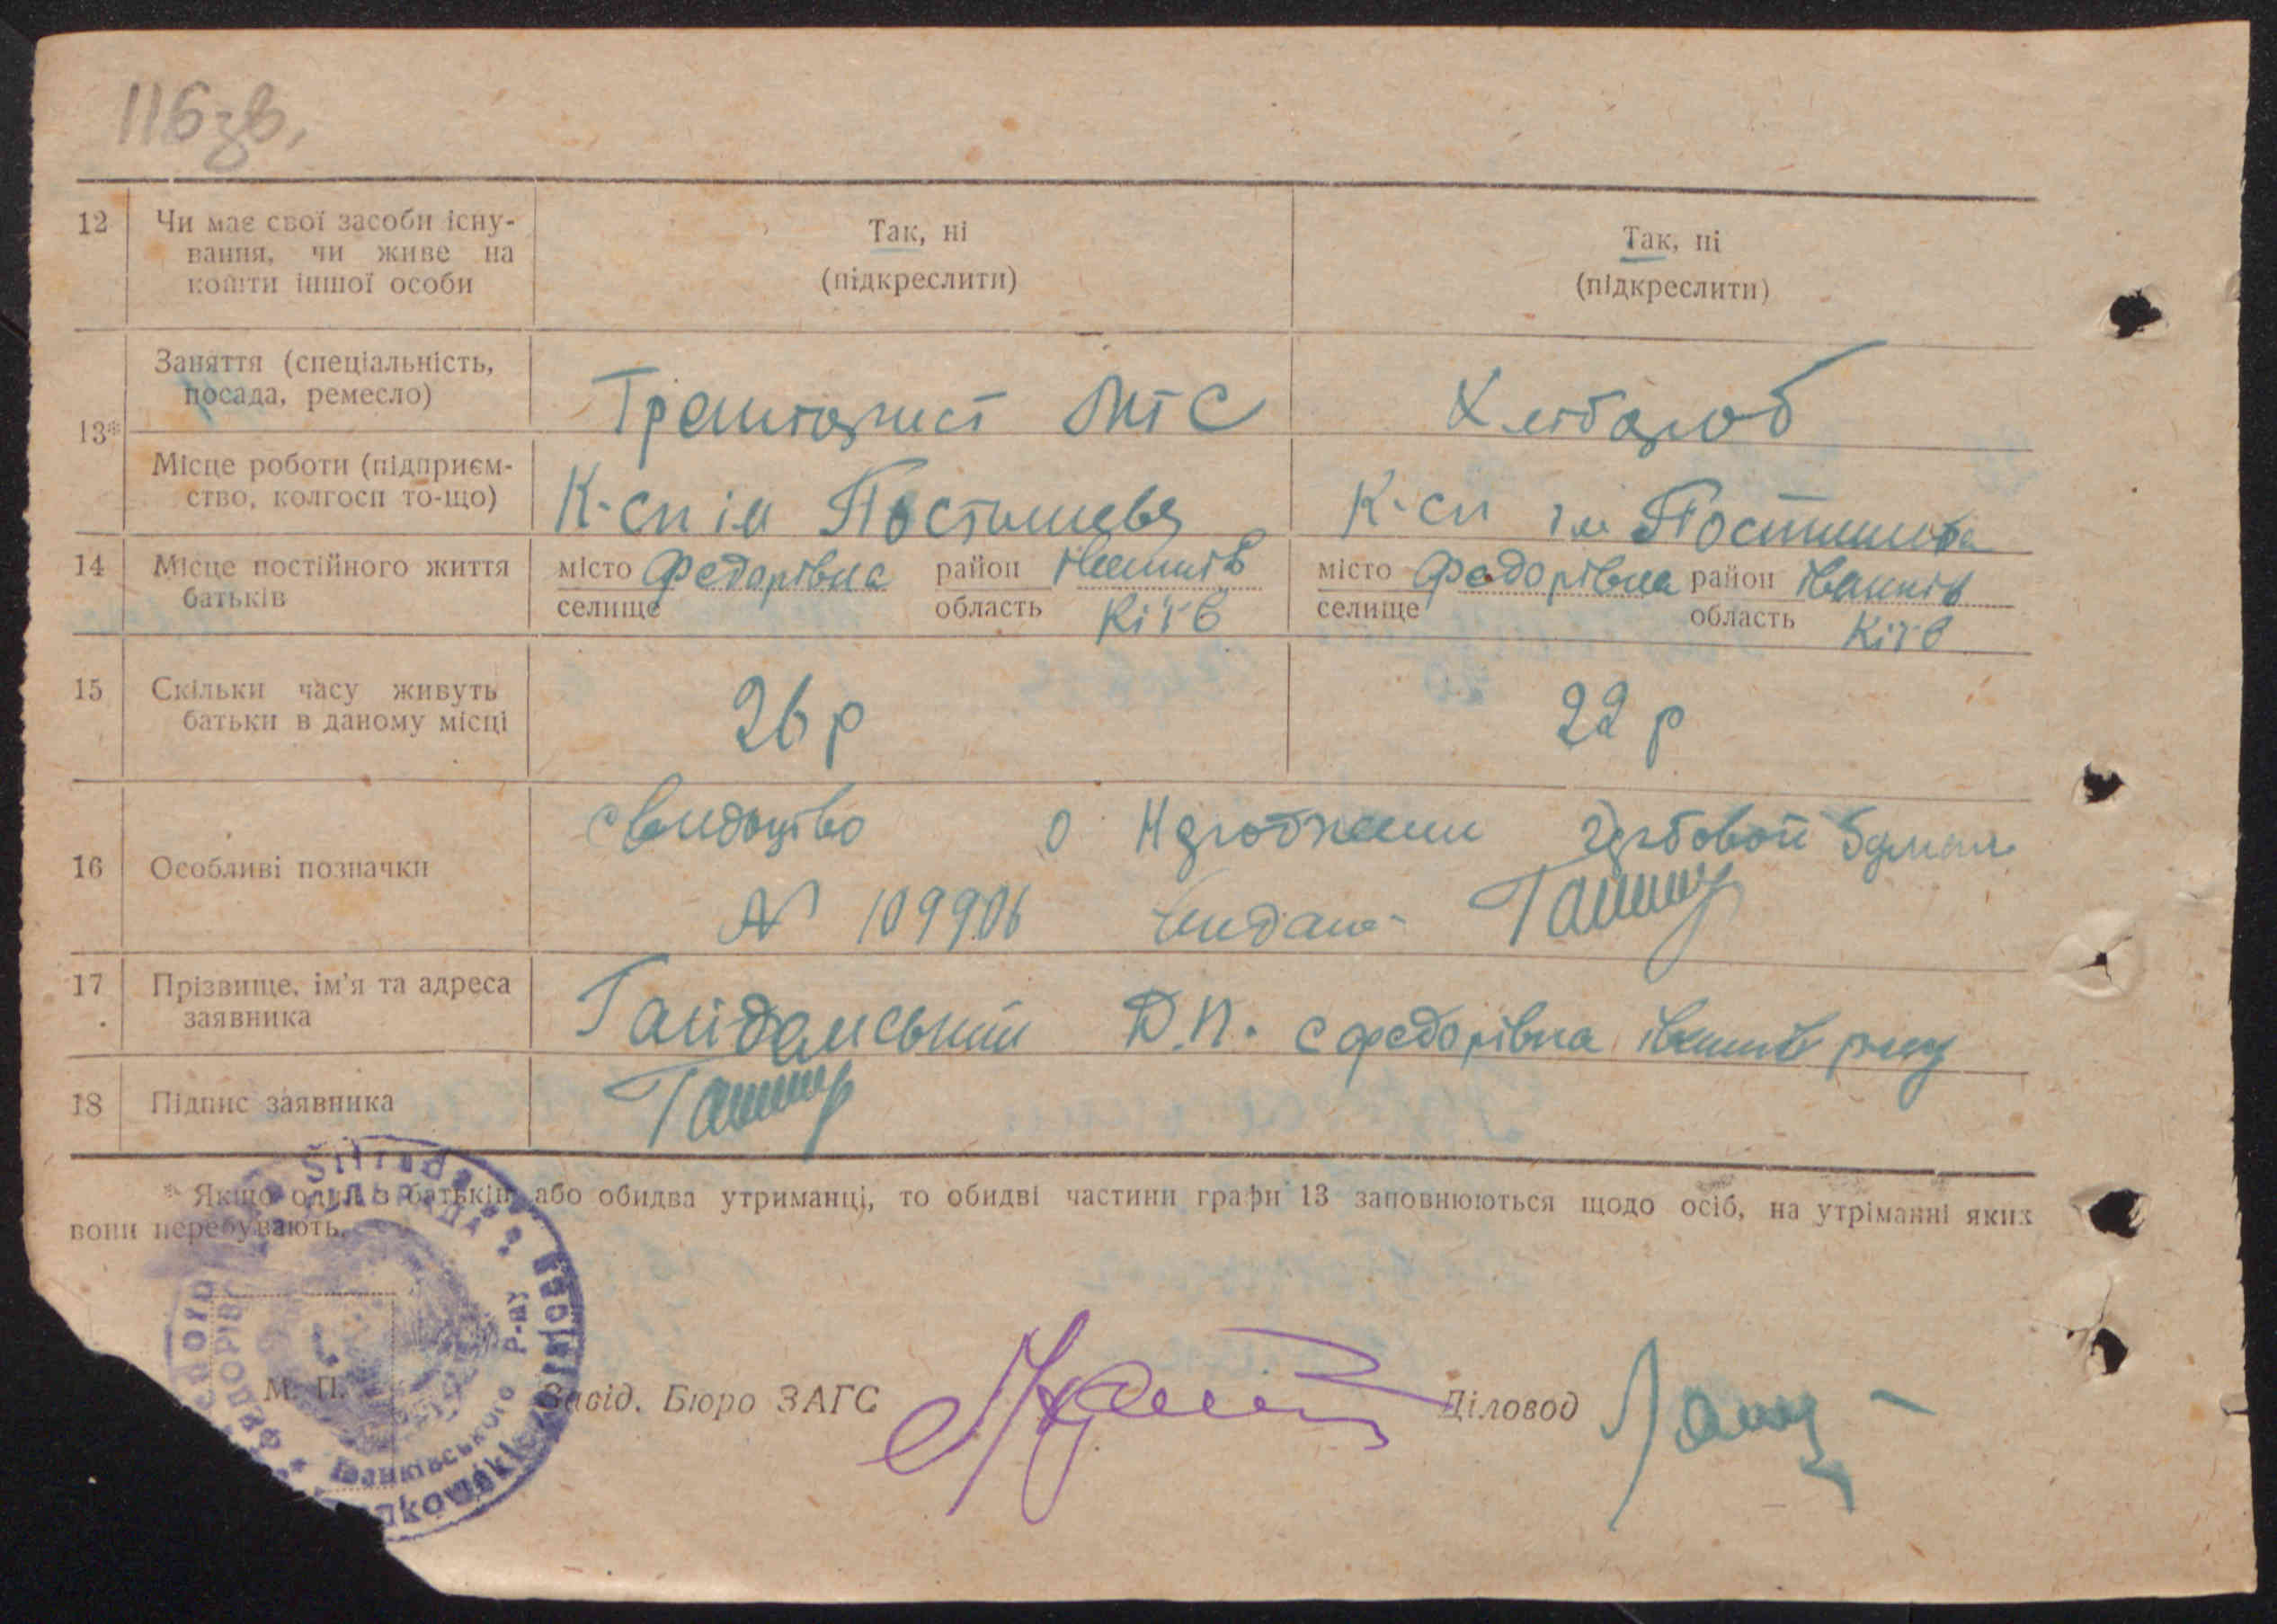 116зв.
12 Чи має свої засоби існу-
вання, чи живе на
кошти іншої особи
Так, ні
(підкреслити)
Так, ні
(підкреслити)
13*
Заняття (спеціальність,
посада, ремесло)
МТС
Хлібороб
Місце роботи (підприєм-
ство, колгосп то-що)
К-сп ім Постишева
К-сп ім Постишева
14 Місце постійного життя
батьків
місто Федорівка район Іванків
селище область Київ
місто Федорівка район Іванків
селище область Київ
15 Скільки часу живуть
батьки в даному місці
26 р
22 р
16 Особливі позначки
свидоцтво о
N 109906
17 Прізвище, ім'я та адреса
заявника
Гайдамський Д.П. с федорівка іванків р-ну
18 Підпис заявника
* Якщо один з батьків або обидва утриманці, то обидві частини графи 13 заповнюються щодо осіб, на утріманні яких
вони перебувають.
Іванківського Р-ну
М. П.
Завід. Бюро ЗАГС
Діловод